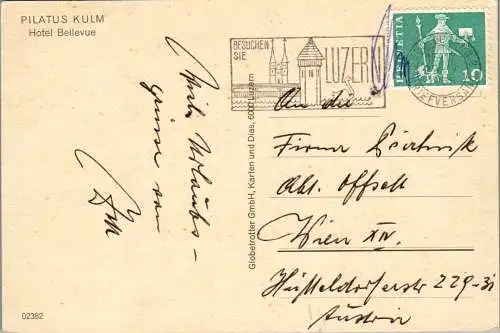 PILATUS KULM
Hotel Bellevue
Viele Urlaubs-
grüsse von
BESUCHEN
SIE
LUZERN
HELVETIA
10
BRIEFVERSAND
Globetrotter GmbH, Karten und Dias, 6000 Luzern
An die
Firma
Abt. Offsett
Wien XIV.
Hütteldorferstr 229-31
Austria
02382